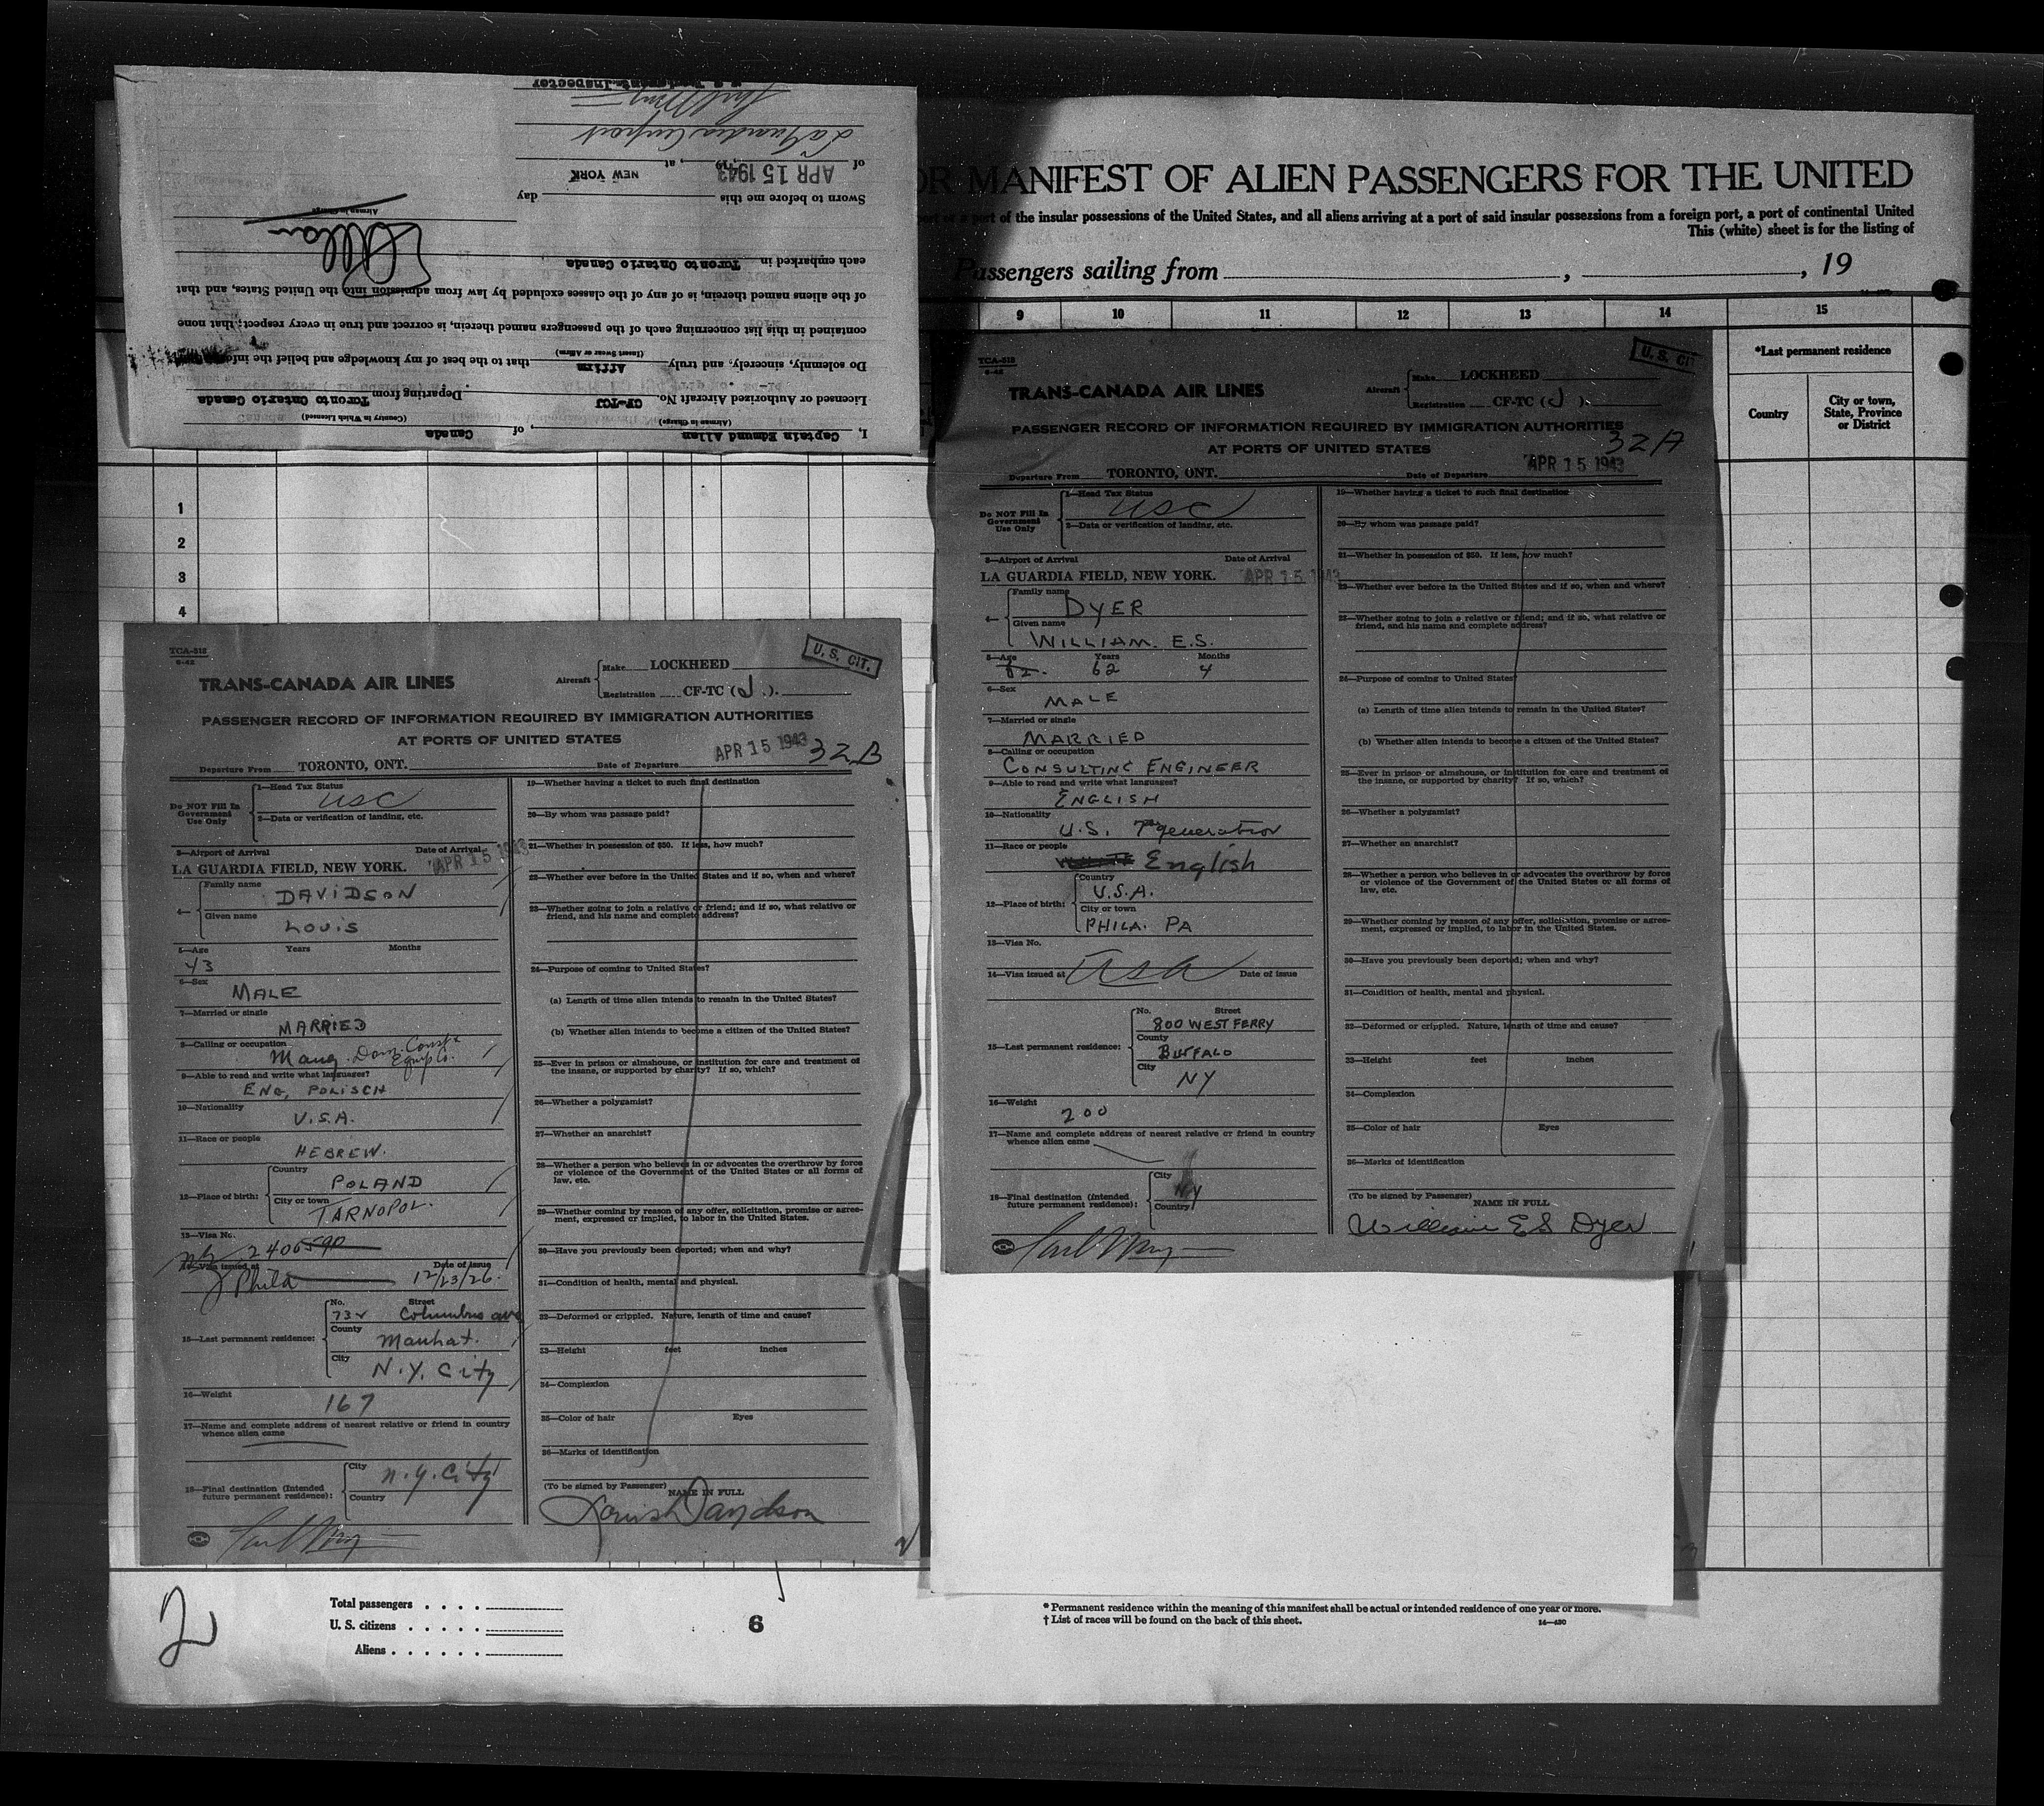 I, Captain Edmund Allan, of Canada
(Airman in Charge) (Country in Which Licensed)
Licensed or Authorized Aircraft No. CF-TCJ Departing from Toronto Ontario Canada
Do solemnly, sincerely, and truly Affirm that to the best of my knowledge and belief the
(Insert Swear or Affirm)
contained in this list concerning each of the passengers named therein, is correct and true in every respect; that none
of the aliens named therein, is of any of the classes excluded by law from admission into the United States, and that
each embarked in Toronto Ontario Canada
Allan
Airman in Charge
Sworn to before me this day
of APR 15 1943, 19, at NEW YORK
La Guardia Airport
Inspector
OR MANIFEST OF ALIEN PASSENGERS FOR THE UNITED
port of the insular possessions of the United States, and all aliens arriving at a port of said insular possessions from a foreign port, a port of continental United
This (white) sheet is for the listing of
Passengers sailing from , , 19
9 10 11 12 13 14 15
*Last permanent residence
Country
City or town, State, Province or District
1
2
3
4
TCA-313
6-42
U. S. CIT.
TRANS-CANADA AIR LINES
Aircraft Make LOCKHEED
Registration CF-TC (J).
PASSENGER RECORD OF INFORMATION REQUIRED BY IMMIGRATION AUTHORITIES
AT PORTS OF UNITED STATES
APR 15 1943 32B
Departure From TORONTO, ONT. Date of Departure
Do NOT Fill In Government Use Only
1—Head Tax Status
USC
2—Data or verification of landing, etc.
3—Airport of Arrival Date of Arrival
LA GUARDIA FIELD, NEW YORK. APR 15 1943
4— Family name
DAVIDSON
Given name
LOUIS
5—Age Years Months
43
6—Sex
MALE
7—Married or single
MARRIED
8—Calling or occupation
Mang. Dom. Const. Equip Co.
9—Able to read and write what languages?
ENG, POLISCH
10—Nationality
U.S.A.
11—Race or people
HEBREW.
12—Place of birth: Country
POLAND
City or town
TARNOPOL.
13—Visa No.
2406590
14—Visa issued at Date of issue
Phila 12/23/26.
15—Last permanent residence: No. Street
732 Columbus ave
County
Manhat.
City
N.Y. City
16—Weight
167
17—Name and complete address of nearest relative or friend in country whence alien came
18—Final destination (Intended future permanent residence): City
N.Y. City
Country
19—Whether having a ticket to such final destination
20—By whom was passage paid?
21—Whether in possession of $50. If less, how much?
22—Whether ever before in the United States and if so, when and where?
23—Whether going to join a relative or friend; and if so, what relative or friend, and his name and complete address?
24—Purpose of coming to United States?
(a) Length of time alien intends to remain in the United States?
(b) Whether alien intends to become a citizen of the United States?
25—Ever in prison or almshouse, or institution for care and treatment of the insane, or supported by charity? If so, which?
26—Whether a polygamist?
27—Whether an anarchist?
28—Whether a person who believes in or advocates the overthrow by force or violence of the Government of the United States or all forms of law, etc.
29—Whether coming by reason of any offer, solicitation, promise or agreement, expressed or implied, to labor in the United States.
30—Have you previously been deported; when and why?
31—Condition of health, mental and physical.
32—Deformed or crippled. Nature, length of time and cause?
33—Height feet inches
34—Complexion
35—Color of hair Eyes
36—Marks of identification
(To be signed by Passenger) NAME IN FULL
Louis Davidson
TCA-313
6-42
U. S. CIT
TRANS-CANADA AIR LINES
Aircraft Make LOCKHEED
Registration CF-TC (J).
PASSENGER RECORD OF INFORMATION REQUIRED BY IMMIGRATION AUTHORITIES
AT PORTS OF UNITED STATES
32A
APR 15 1943
Departure From TORONTO, ONT. Date of Departure
Do NOT Fill In Government Use Only
1—Head Tax Status
USC
2—Data or verification of landing, etc.
3—Airport of Arrival Date of Arrival
LA GUARDIA FIELD, NEW YORK. APR 15 1943
4— Family name
DYER
Given name
WILLIAM. E.S.
5—Age Years Months
62. 62 4
6—Sex
MALE
7—Married or single
MARRIED
8—Calling or occupation
CONSULTING ENGINEER
9—Able to read and write what languages?
ENGLISH
10—Nationality
U.S. 7th generation
11—Race or people
WHITE English
12—Place of birth: Country
U.S.A.
City or town
PHILA. PA
13—Visa No.
14—Visa issued at USA Date of issue
15—Last permanent residence: No. Street
800 WEST FERRY
County
BUFFALO
City
NY
16—Weight
200
17—Name and complete address of nearest relative or friend in country whence alien came
18—Final destination (Intended future permanent residence): City
NY
Country
19—Whether having a ticket to such final destination
20—By whom was passage paid?
21—Whether in possession of $50. If less, how much?
22—Whether ever before in the United States and if so, when and where?
23—Whether going to join a relative or friend; and if so, what relative or friend, and his name and complete address?
24—Purpose of coming to United States?
(a) Length of time alien intends to remain in the United States?
(b) Whether alien intends to become a citizen of the United States?
25—Ever in prison or almshouse, or institution for care and treatment of the insane, or supported by charity? If so, which?
26—Whether a polygamist?
27—Whether an anarchist?
28—Whether a person who believes in or advocates the overthrow by force or violence of the Government of the United States or all forms of law, etc.
29—Whether coming by reason of any offer, solicitation, promise or agreement, expressed or implied, to labor in the United States.
30—Have you previously been deported; when and why?
31—Condition of health, mental and physical.
32—Deformed or crippled. Nature, length of time and cause?
33—Height feet inches
34—Complexion
35—Color of hair Eyes
36—Marks of identification
(To be signed by Passenger) NAME IN FULL
William ES Dyer
2
Total passengers . . . .
U. S. citizens . . . . .
Aliens . . . . . .
6
* Permanent residence within the meaning of this manifest shall be actual or intended residence of one year or more.
† List of races will be found on the back of this sheet.
14—430